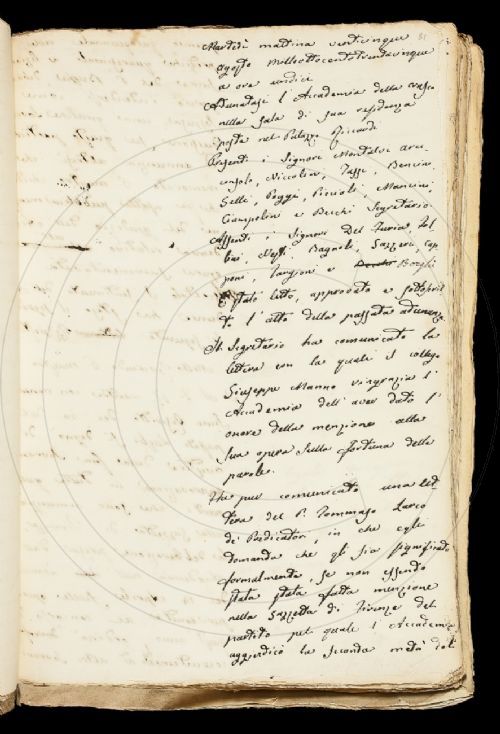 51
Martedì mattina venticinque
agosto milleottocentotrentacinque
a ore undici
Adunatasi l'Accademia della Crusca
nella sala di sua residenza
posta nel Palazzo Riccardi
Presenti i Signori Montalvi arci
consolo, Niccolini, Tassi, Bencini
Selli, Poggi, Piccioli Mancini,
Ciampolini e Becchi Segretario
Assenti i Signori Del Furia, Zel
lini, Nesti, Bagnoli, Gazzeri, Cap
poni, Targioni e Borghi
È stato letto, approvato e sottoscrit
to l'atto della passata adunanza
Il Segretario ha comunicato la
lettera con la quale il collega
Giuseppe Manno ringrazia l'
Accademia dell'aver dato l'
onore della menzione alla
sua opera sulla fortuna delle
parole.
Ha pur comunicato una let-
tera del P. Tommaso Larco
de' Predicatori, in che egli
domanda che gli sia significato
formalmente, se non essendo
stata fatta menzione
nella Gazzetta di Firenze del
partito pel quale l'Accademia
aggiudicò la seconda metà del